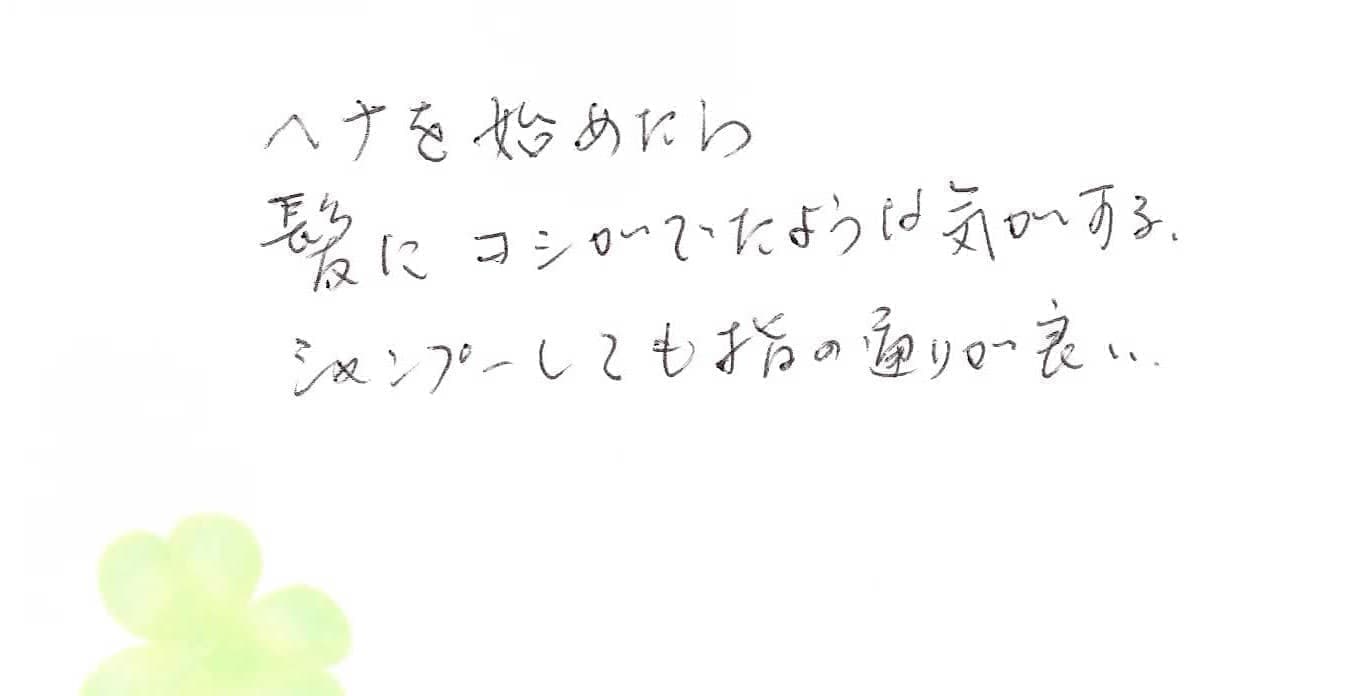 ヘナを始めたら
髪にコシがでたような気がする、
シャンプーしても指の通りが良い、